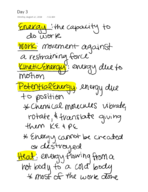 Day 2
Energy: the capacity to
do work
Work: movement against
a restraining force
Kinetic Energy: energy due to
motion
Potential Energy: energy due
to position
* Chemical molecules vibrate,
rotate, & translate giving
them KE + PE
* Energy cannot be created
or destroyed
Heat: energy flowing from a
hot body to a cold body
* most of the work done